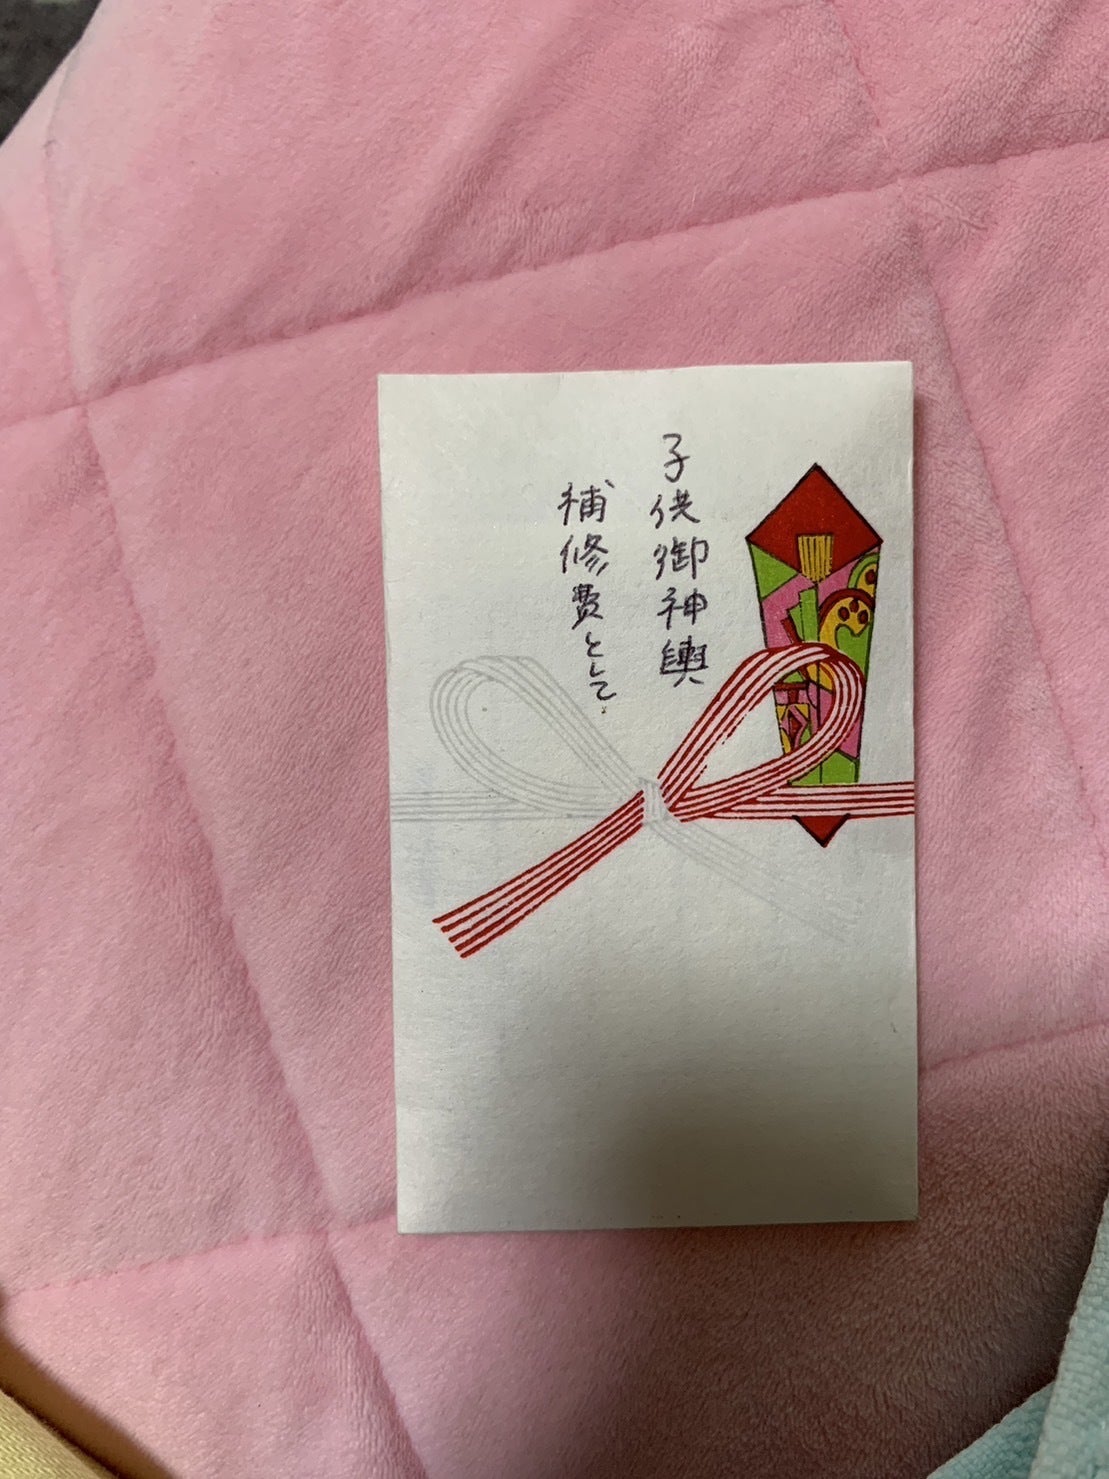 子供御神輿
補修費として.